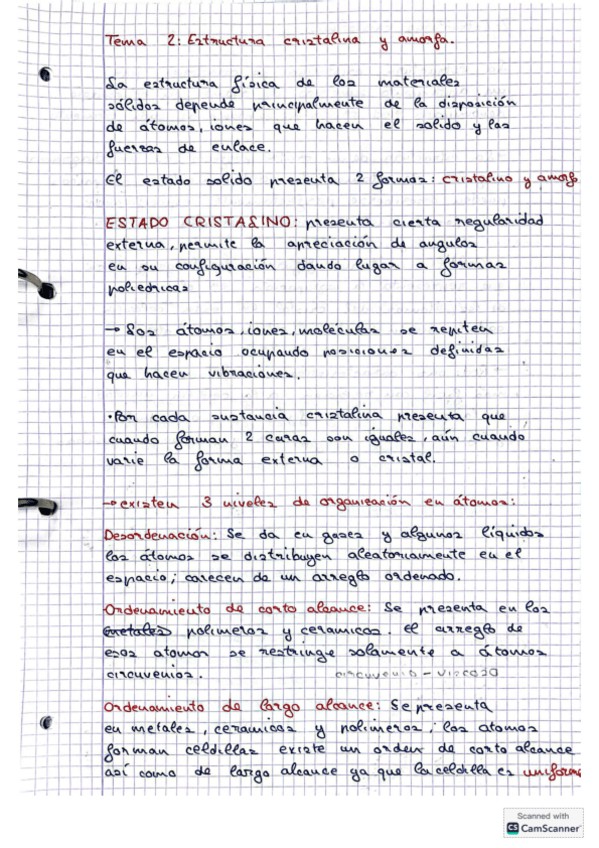 Tema 2: Estructura cristalina y amorfa.
La estructura física de los materiales
sólidos depende principalmente de la disposición
de átomos, iones que hacen el solido y las
fuerzas de enlace.
El estado solido presenta 2 formas: cristalino y amorfo
ESTADO CRISTALINO: presenta cierta regularidad
externa, permite la apreciación de angulos
en su configuración dando lugar a formas
poliedricas
→ Los átomos, iones, moléculas se repiten
en el espacio ocupando posiciones definidas
que hacen vibraciones.
·Por cada sustancia cristalina presenta que
cuando forman 2 caras son iguales, aún cuando
varie la forma externa o cristal.
→ existen 3 niveles de organización en átomos:
Desordenación: Se da en gases y algunos líquidos
los átomos se distribuyen aleatoriamente en el
espacio; carecen de un arreglo ordenado.
Ordenamiento de corto alcance: Se presenta en los
metales polimeros y ceramicos. el arreglo de
esos atomos se restringe solamente a átomos
circuvenios. circuvenio - viscoso
Ordenamiento de largo alcance: Se presenta
en metales, ceramicas y polimeros; los atomos
forman celdillas existe un orden de corto alcance
así como de largo alcance ya que la celdilla es uniforme
Scanned with
CS CamScanner